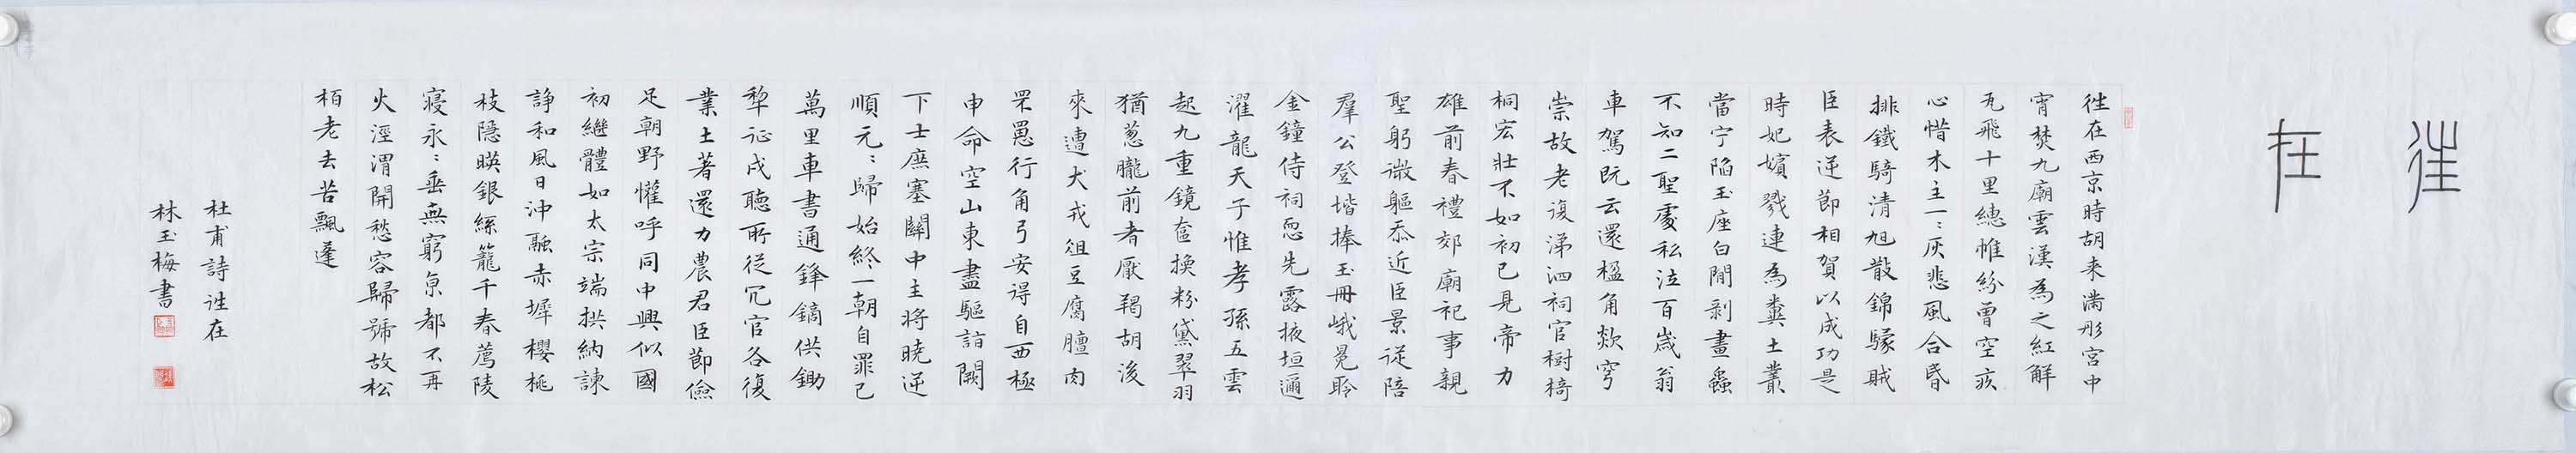 往在
往在西京時胡来滿彤宮中
宵焚九廟雲漢為之紅解
瓦飛十里繐帷紛曾空疚
心惜木主一〻灰悲風合昏
排鐵騎清旭散錦幪賊
臣表逆節相賀以成功是
時妃嬪戮連為糞土叢
當宁陷玉座白間剝畫蟲
不知二聖處私泣百歲翁
車駕既云還楹角欻穹
崇故老復涕泗祠官樹椅
桐宏壯不如初已見帝力
雄前春禮郊廟祀事親
聖躬微軀忝近臣景從陪
羣公登堦捧玉冊峨冕聆
金鐘侍祠恧先露掖垣邇
濯龍天子惟孝孫五雲
起九重鏡奩換粉黛翠羽
猶蔥朧前者厭羯胡後
來遭犬戎俎豆腐膻肉
罘罳行角弓安得自西極
申命空山東盡驅詣闕
下士庶塞關中主將曉逆
順元〻歸始終一朝自罪己
萬里車書通鋒鏑供鋤
犂征戍聽所從冗官各復
業土著還力農君臣節儉
足朝野懽呼同中興似國
初繼體如太宗端拱納諫
諍和風日沖融赤墀櫻桃
枝隱暎銀絲籠千春薦陵
寢永〻垂無窮京都不再
火涇渭開愁容歸號故松
柏老去苦飄蓬
杜甫詩往在
林玉梅書